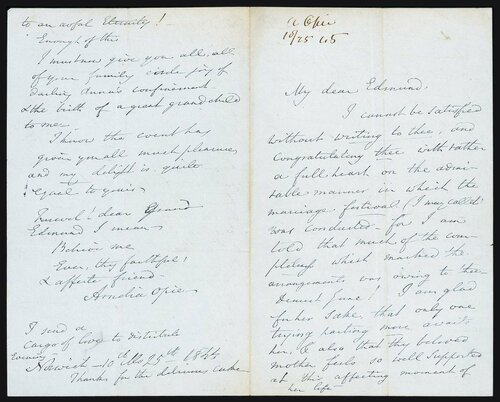 A Opie
10/25 45
My dear Edmund,
I cannot be satisfied
without writing to thee, and
Congratulating thee with rather
a full heart on the admi-
rable manner in which the
marriage festival (I may call it)
was conducted - for I am
told that much of the com-
pleteness which marked the
arrangements was owing to thee
Dearest Jane! I am glad
for her sake, that only one
trying parting more awaits
her, & also that thy beloved
mother feels so well supported
at this affecting moment of
her life
to an awful Eternity!
Enough of this
I must now give you all, all
of your family circle joy of
darling Anna's confinement
& the birth of a great grand child
to me
I know the event has
given you all much pleasure,
and my delight is quite
equal to yours
Farewell! dear Grand
Edmund I mean
Believe me
Ever, thy faithful
& affecte friend
Amelia Opie
I send a
Cargo of love to distribute
Norwich - 10th Mo 25th 1844
Thanks for the delicious cake